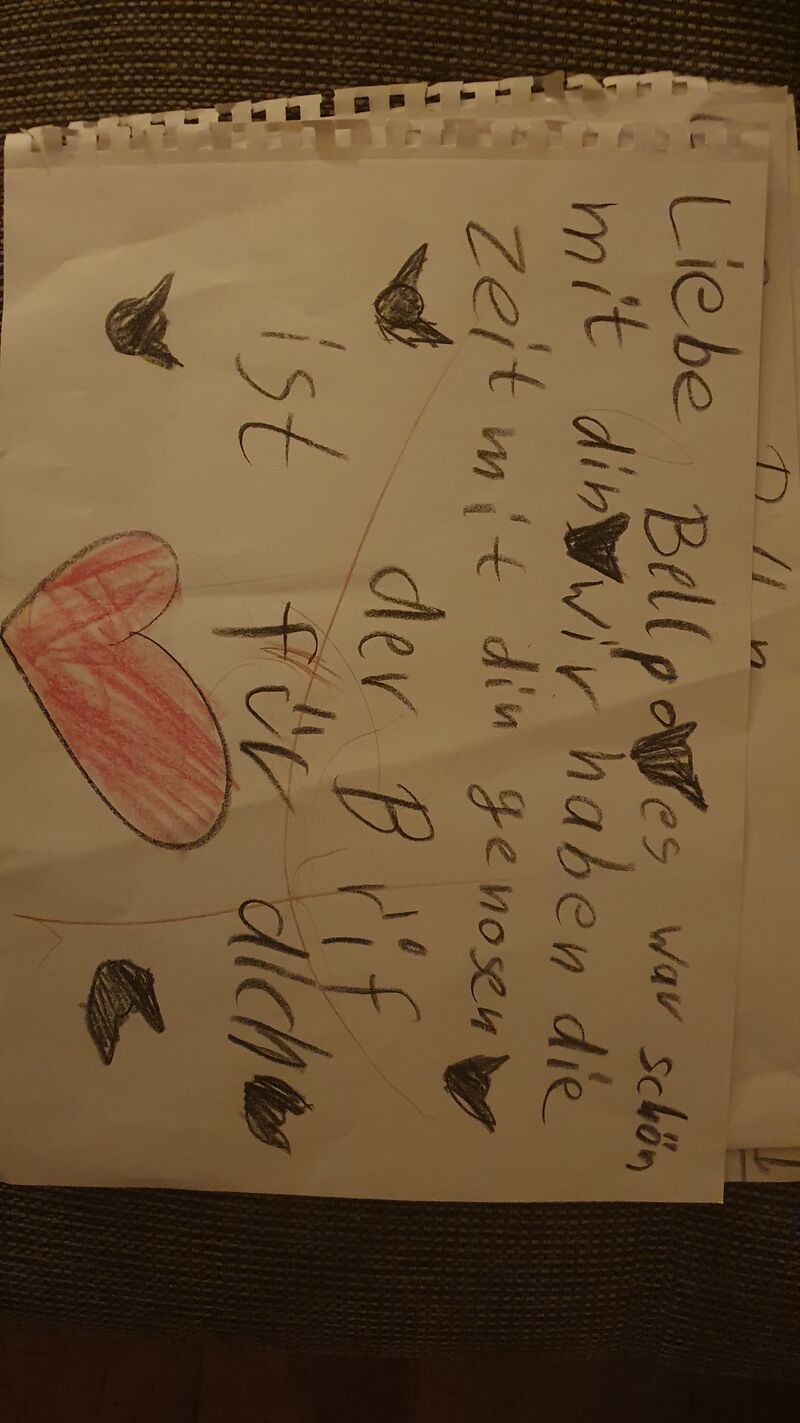 Liebe Bellpo es war schön
mit din wir haben die
Zeit mit din genosen
der Brif
ist für dich